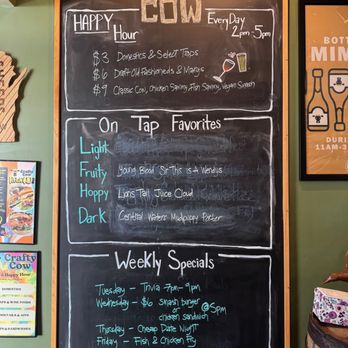 COW
HAPPY Hour
EveryDay
2pm-5pm
$3 Domestics & Select Taps
$6 Draft Old Fashioneds & Margs
$9 Classic Cow, Chicken Sammy, Fish Sammy, Vegan
On Tap Favorites
Light
Fruity Young Blood Sir This is A Wendys
Hoppy Lions Tail Juice Cloud
Dark Central Waters Mudpuppy Porter
Weekly Specials
Tuesday - Trivia 7pm-9pm
Wednesday - $6 smash burger
or @5pm
chicken sandwich
Thursday - Cheap Date Night
Friday - Fish & Chicken Fry
Crafty
Cow
Happy Hour
BOTT
MIM
DURI
11 AM